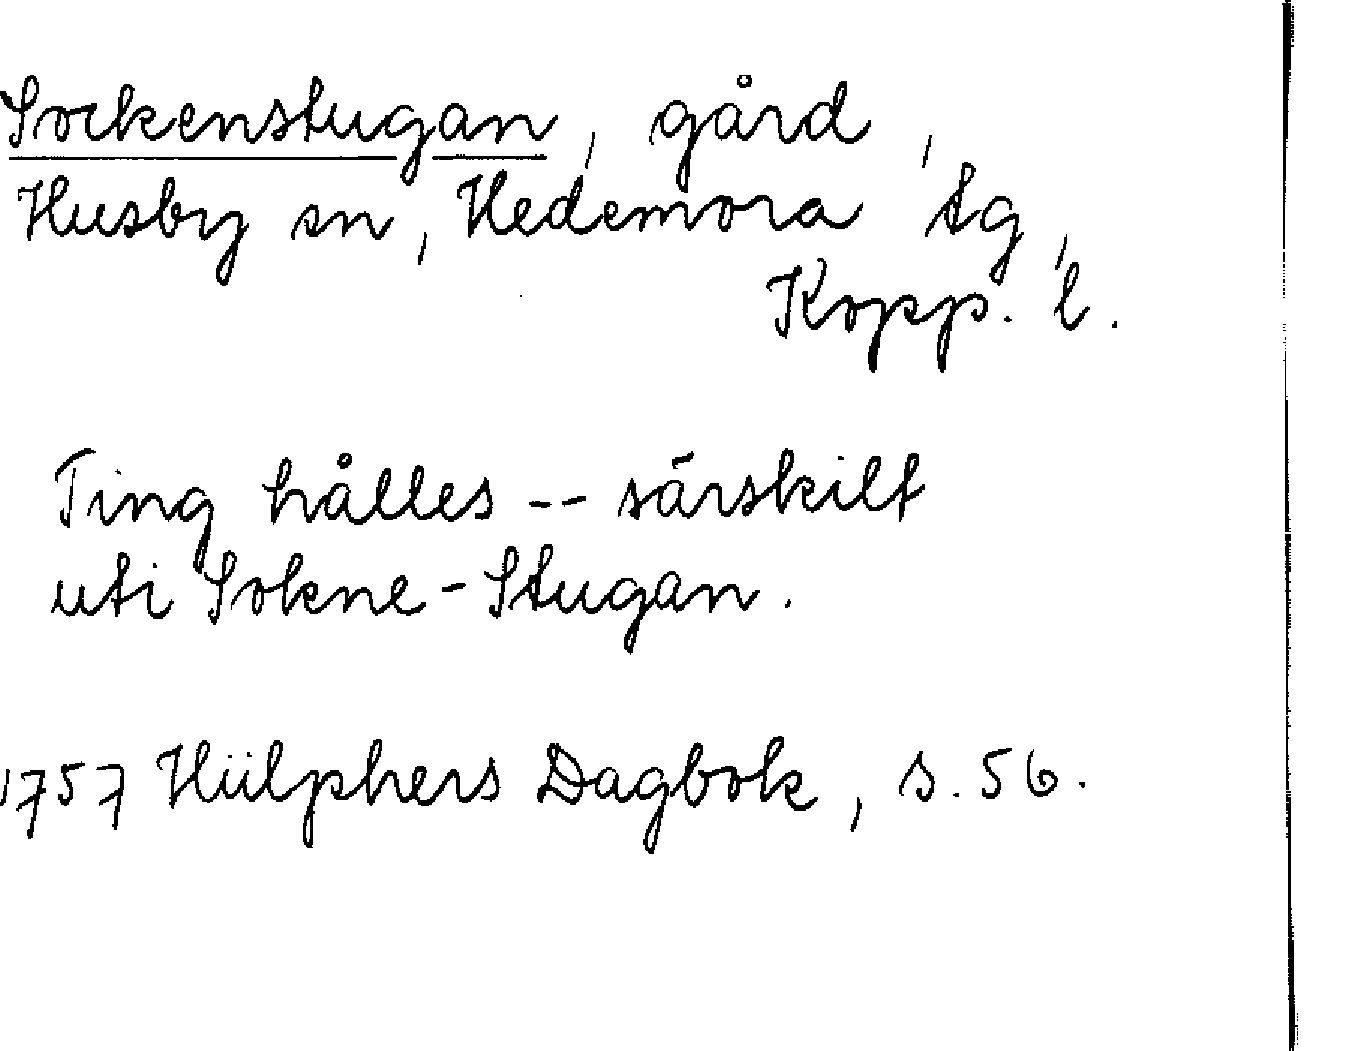 Sockenstugan, gård,
Husby sn, Hedemora tg,
Kopp. l.
Ting hålles -- särskilt
uti Sokne-Stugan.
1757 Hülphers Dagbok, s. 56.